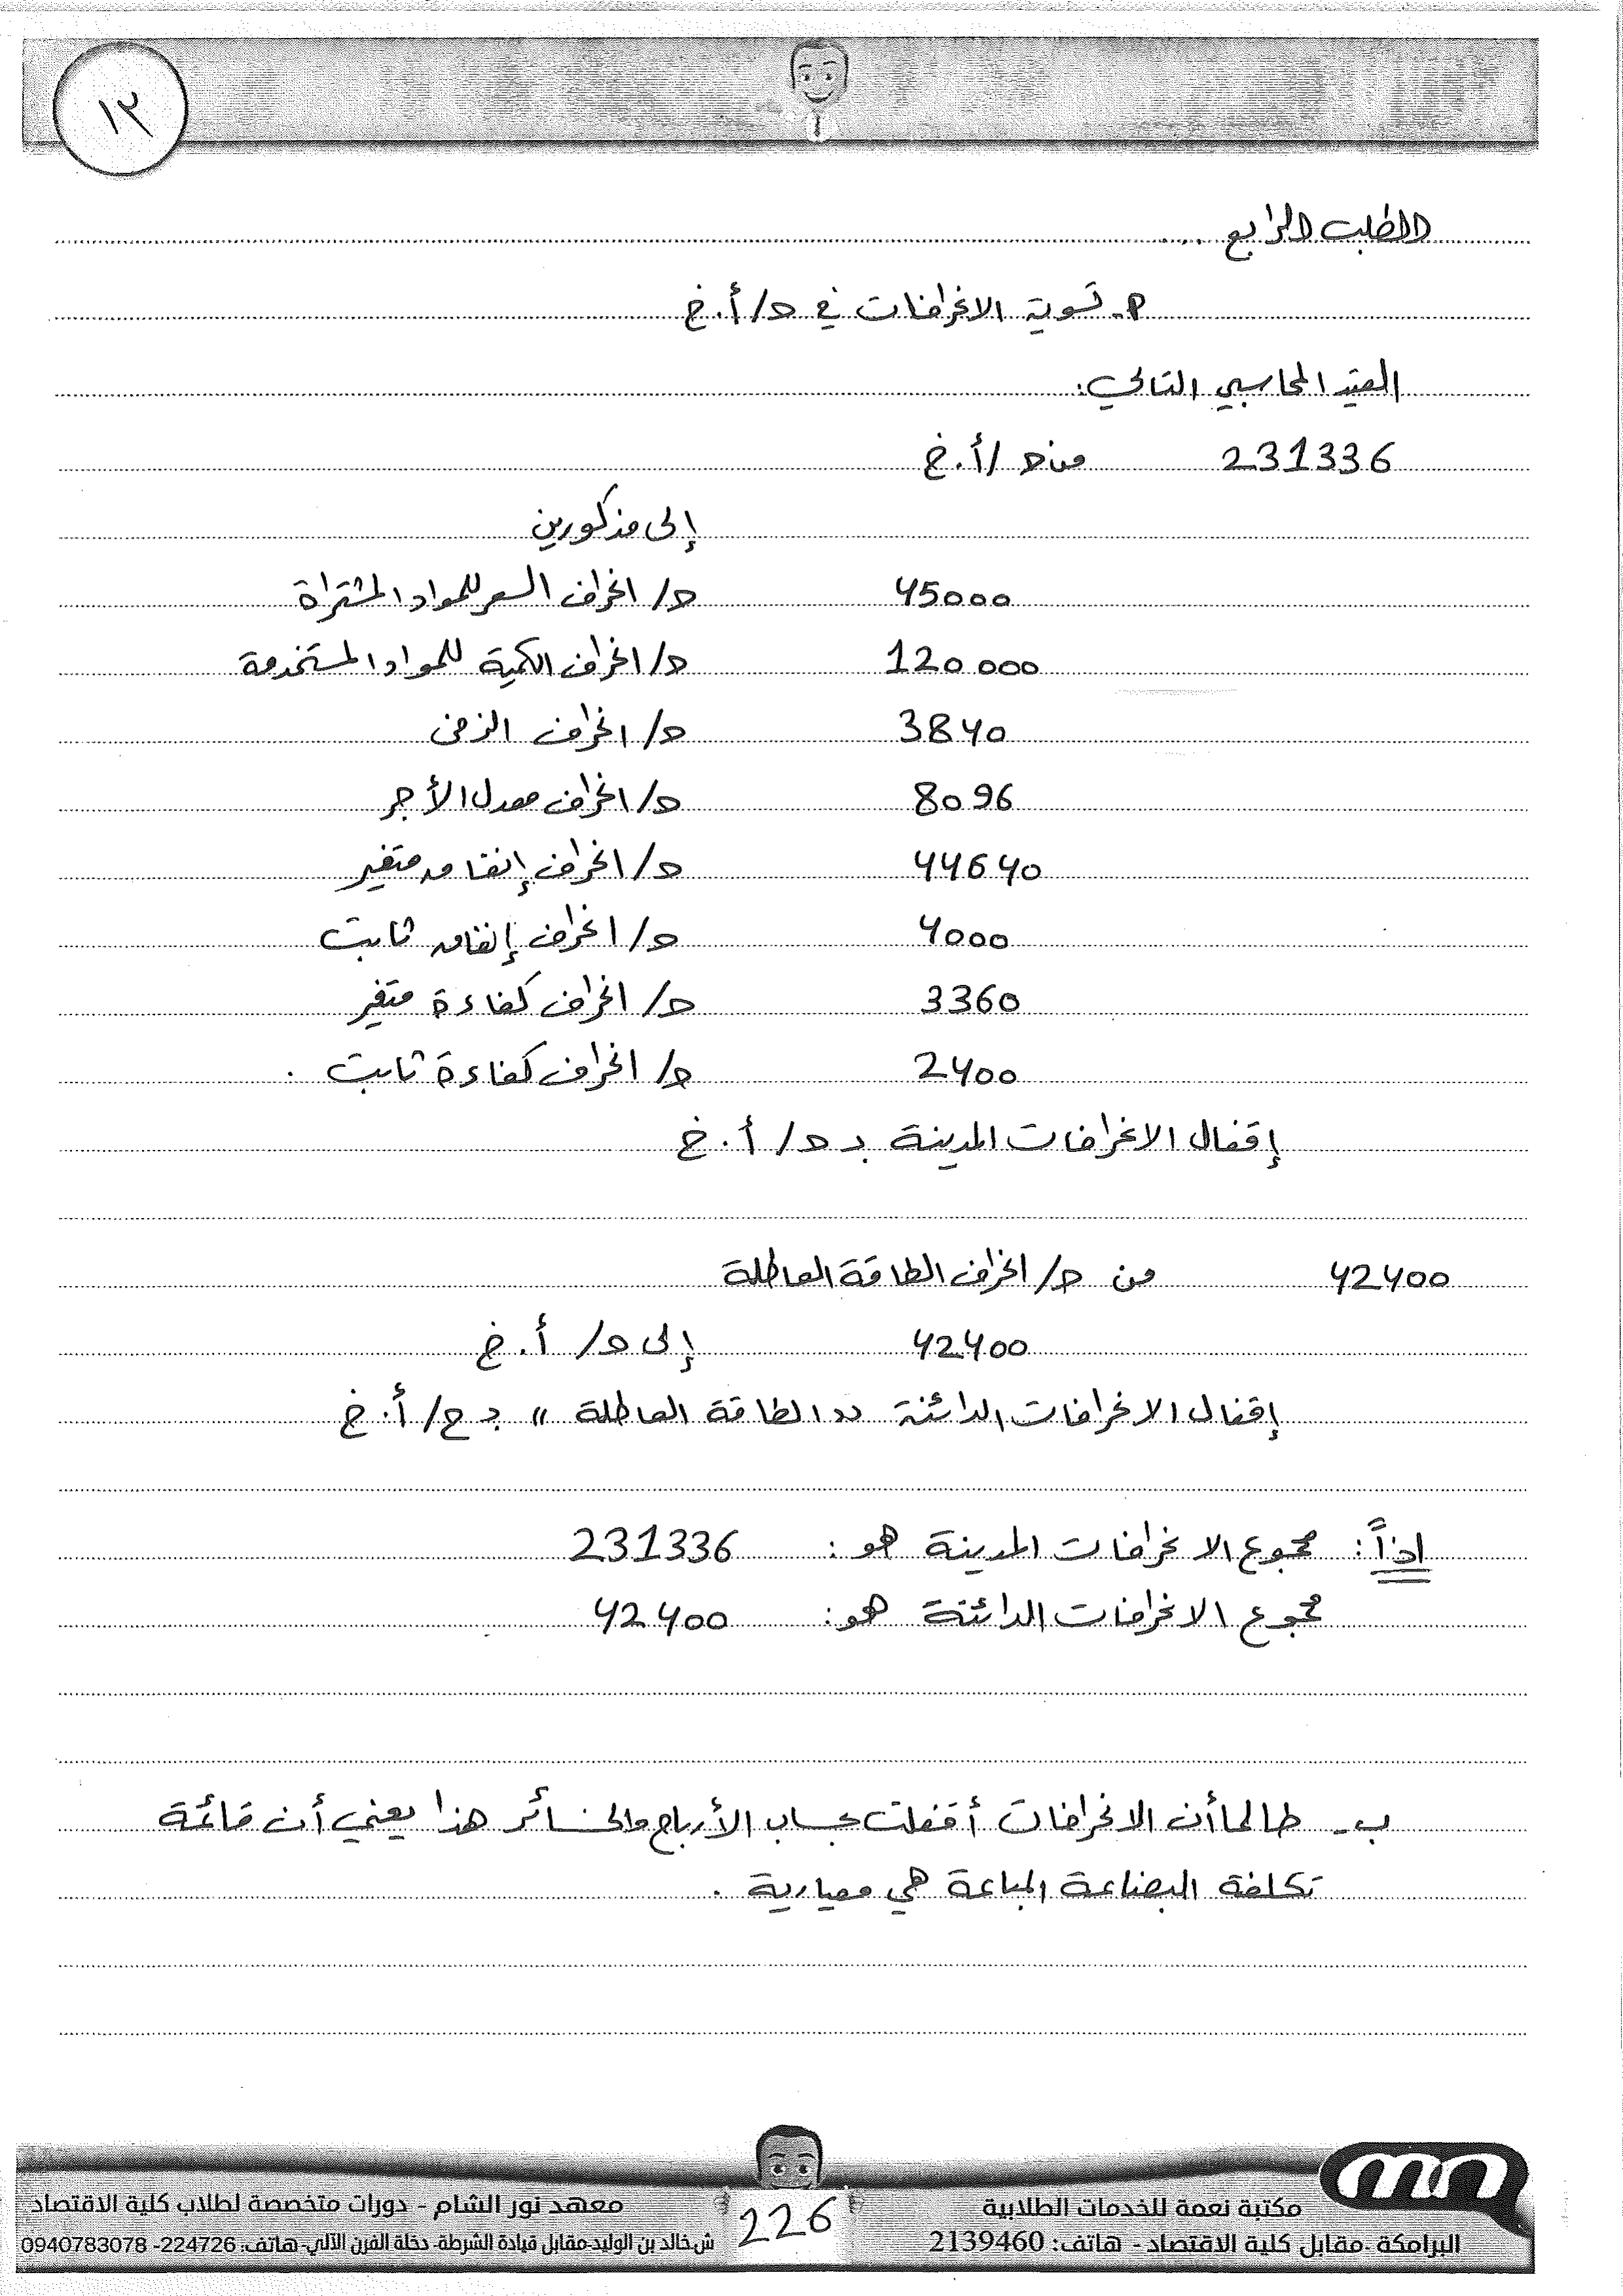 ١٢
الطلب الرابع ....
P- تسوية الانحرافات في ح/ أ. خ
القيد المحاسبي التالي:
231336 من ح/ أ. خ
إلى مذكورين
45000 ح/ انحراف السعر للمواد المشتراة
120000 ح/ انحراف الكمية للمواد المستخدمة
3840 ح/ انحراف الزمن
8096 ح/ انحراف معدل الأجر
44640 ح/ انحراف إنفاق متغير
4000 ح/ انحراف إنفاق ثابت
3360 ح/ انحراف كفاءة متغير
2400 ح/ انحراف كفاءة ثابت .
إقفال الانحرافات المدينة بـ ح/ أ. خ
42400 من ح/ انحراف الطاقة العاطلة
42400 إلى ح/ أ. خ
إقفال الانحرافات الدائنة "الطاقة العاطلة" بـ ح/ أ. خ
اذاً: مجموع الانحرافات المدينة هو: 231336
مجموع الانحرافات الدائنة هو: 42400
ب- طالما أن الانحرافات أقفلت بحساب الأرباح والخسائر هذا يعني أن قائمة
تكلفة البضاعة المباعة هي معيارية .
مكتبة نعمة للخدمات الطلابية
البرامكة -مقابل كلية الاقتصاد - هاتف: 2139460
226
معهد نور الشام - دورات متخصصة لطلاب كلية الاقتصاد
ش.خالد بن الوليد-مقابل قيادة الشرطة- دخلة الفرن الآلي- هاتف: 224726- 0940783078